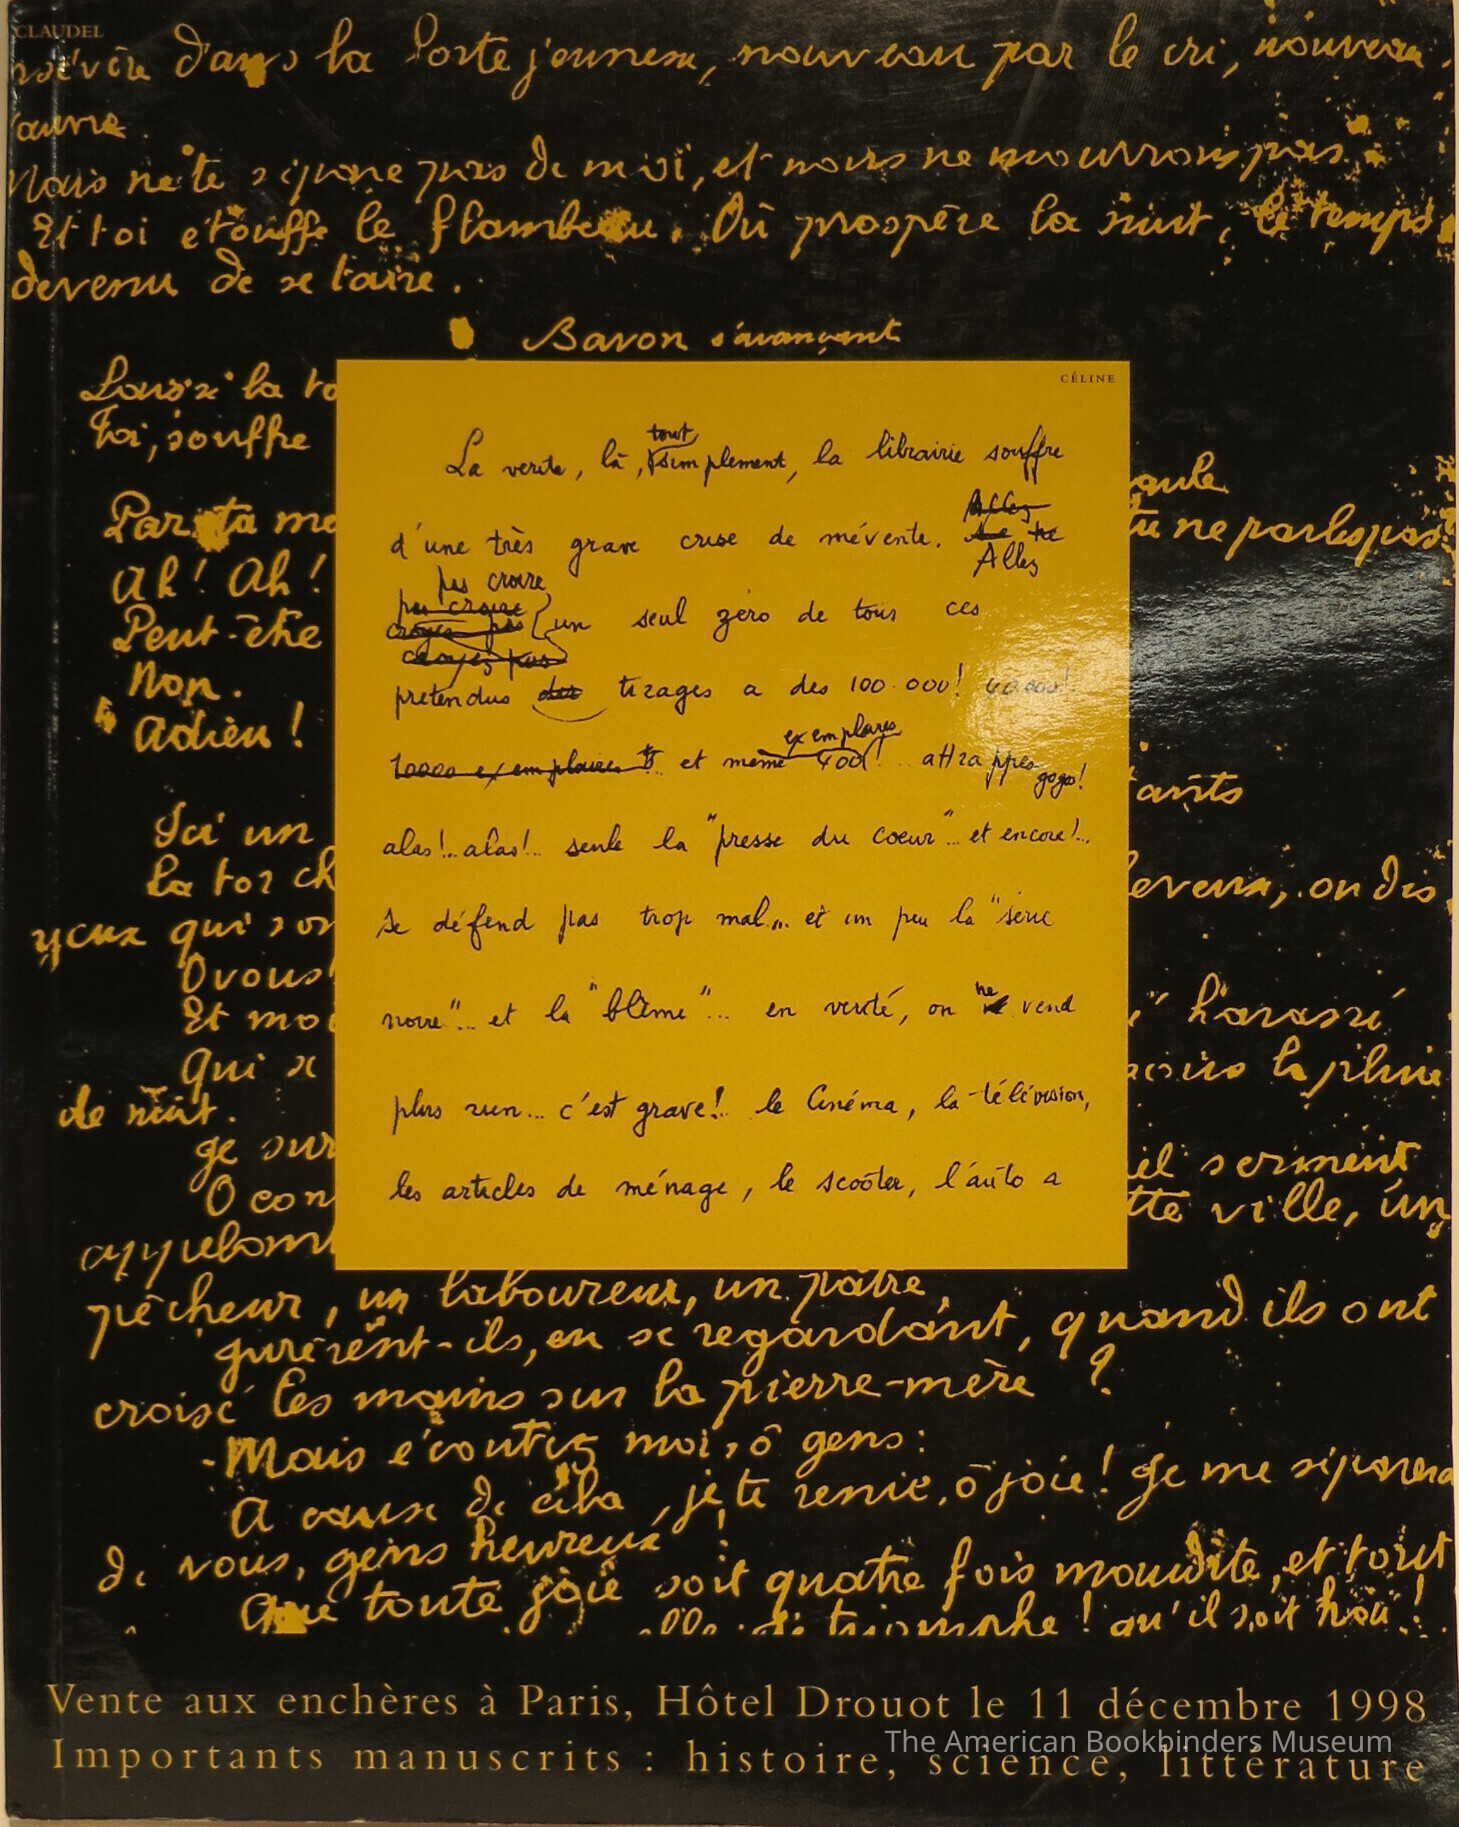 CLAUDEL
dans la Porte jeunesse, nouveau par le cri, nouveau
Mais ne te sépare pas de moi, et nous ne mourrons pas.
Et toi étouffe le flambeau. Où prospère la nuit, le temps
devenu de se taire.
Bavon s'avançant
Laisse la to
Toi, souffre
Par ta me
tu ne parles pas
Ah! Ah!
Peut-être
Non.
Adieu!
Ici un
La tor ch
eveux, on dis
yeux qui son
O vous
Et moi
harassé
Qui se
la pluie
de nuit.
Je sur
serment
O con
tte ville, un
pêcheur, un laboureur, un pâtre,
jurèrent-ils, en se regardant, quand ils ont
croisé les mains sur la pierre-mère ?
- Mais écoutez moi, ô gens:
A cause de cela, je te renie, ô joie! Je me séparerai
de vous, gens heureux!
Que toute joie soit quatre fois maudite, et tout
triomphe! qu'il soit haï!
CÉLINE
La verite, là, tout simplement, la librairie souffre
d'une très grave crise de mévente. Allez
pas croire un seul zéro de tous ces
pretendus tirages a des 100.000! 40.000!
10000 exemplaires et même 400 exemplaires! attrappes gogos!
alas!.. alas!.. seule la "presse du coeur"... et encore!..
se défend pas trop mal... et un peu la "serie
noire"... et la "blême"... en vérité, on ne vend
plus rien... c'est grave!.. le Cinéma, la télévision,
les articles de ménage, le scooter, l'auto a
Vente aux enchères à Paris, Hôtel Drouot le 11 décembre 1998
Importants manuscrits : histoire, science, littérature
The American Bookbinders Museum